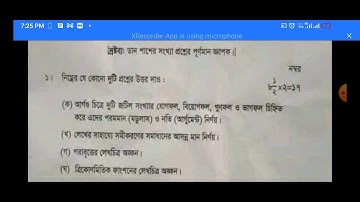 7:25 PM
XRecorder App is using microphone
দ্রষ্টব্য: ডান পাশের সংখ্যা প্রশ্নের পূর্ণমান জ্ঞাপক।
নম্বর
১। নিম্নের যে কোনো দুটি প্রশ্নের উত্তর দাও : ৮ ১/২ ×২=১৭
(ক) আর্গন্ড চিত্রে দুটি জটিল সংখ্যার যোগফল, বিয়োগফল, গুণফল ও ভাগফল চিহ্নিত
করে ওদের পরমমান (মডুলাস) ও নতি (আর্গুমেন্ট) নির্ণয়।
(খ) লেখের সাহায্যে সমীকরণের সমাধানের আসন্ন মান নির্ণয়।
(গ) পরাবৃত্তের লেখচিত্র অঙ্কন।
(ঘ) ত্রিকোণমিতিক ফাংশনের লেখচিত্র অঙ্কন।